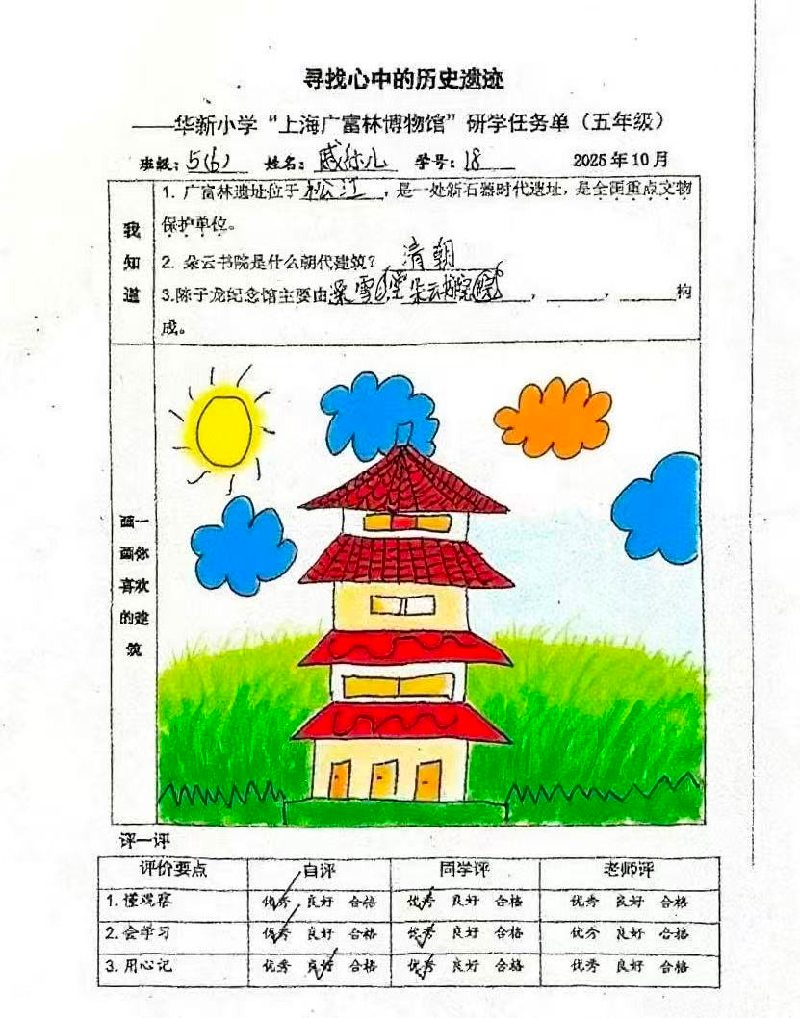 寻找心中的历史遗迹
——华新小学“上海广富林博物馆”研学任务单（五年级）
班级：5(6) 姓名： 学号：18 2025年10月
我知道
1. 广富林遗址位于松江，是一处新石器时代遗址，是全国重点文物
保护单位。
2. 朵云书院是什么朝代建筑？清朝
3.陈子龙纪念馆主要由 雪 堂 朵云书院 ，，构
成。
画一
画你
喜欢
的建
筑
评一评
评价要点 自评 同学评 老师评
1. 懂观察 优秀 良好 合格 优秀 良好 合格 优秀 良好 合格
2. 会学习 优秀 良好 合格 优秀 良好 合格 优秀 良好 合格
3. 用心记 优秀 良好 合格 优秀 良好 合格 优秀 良好 合格